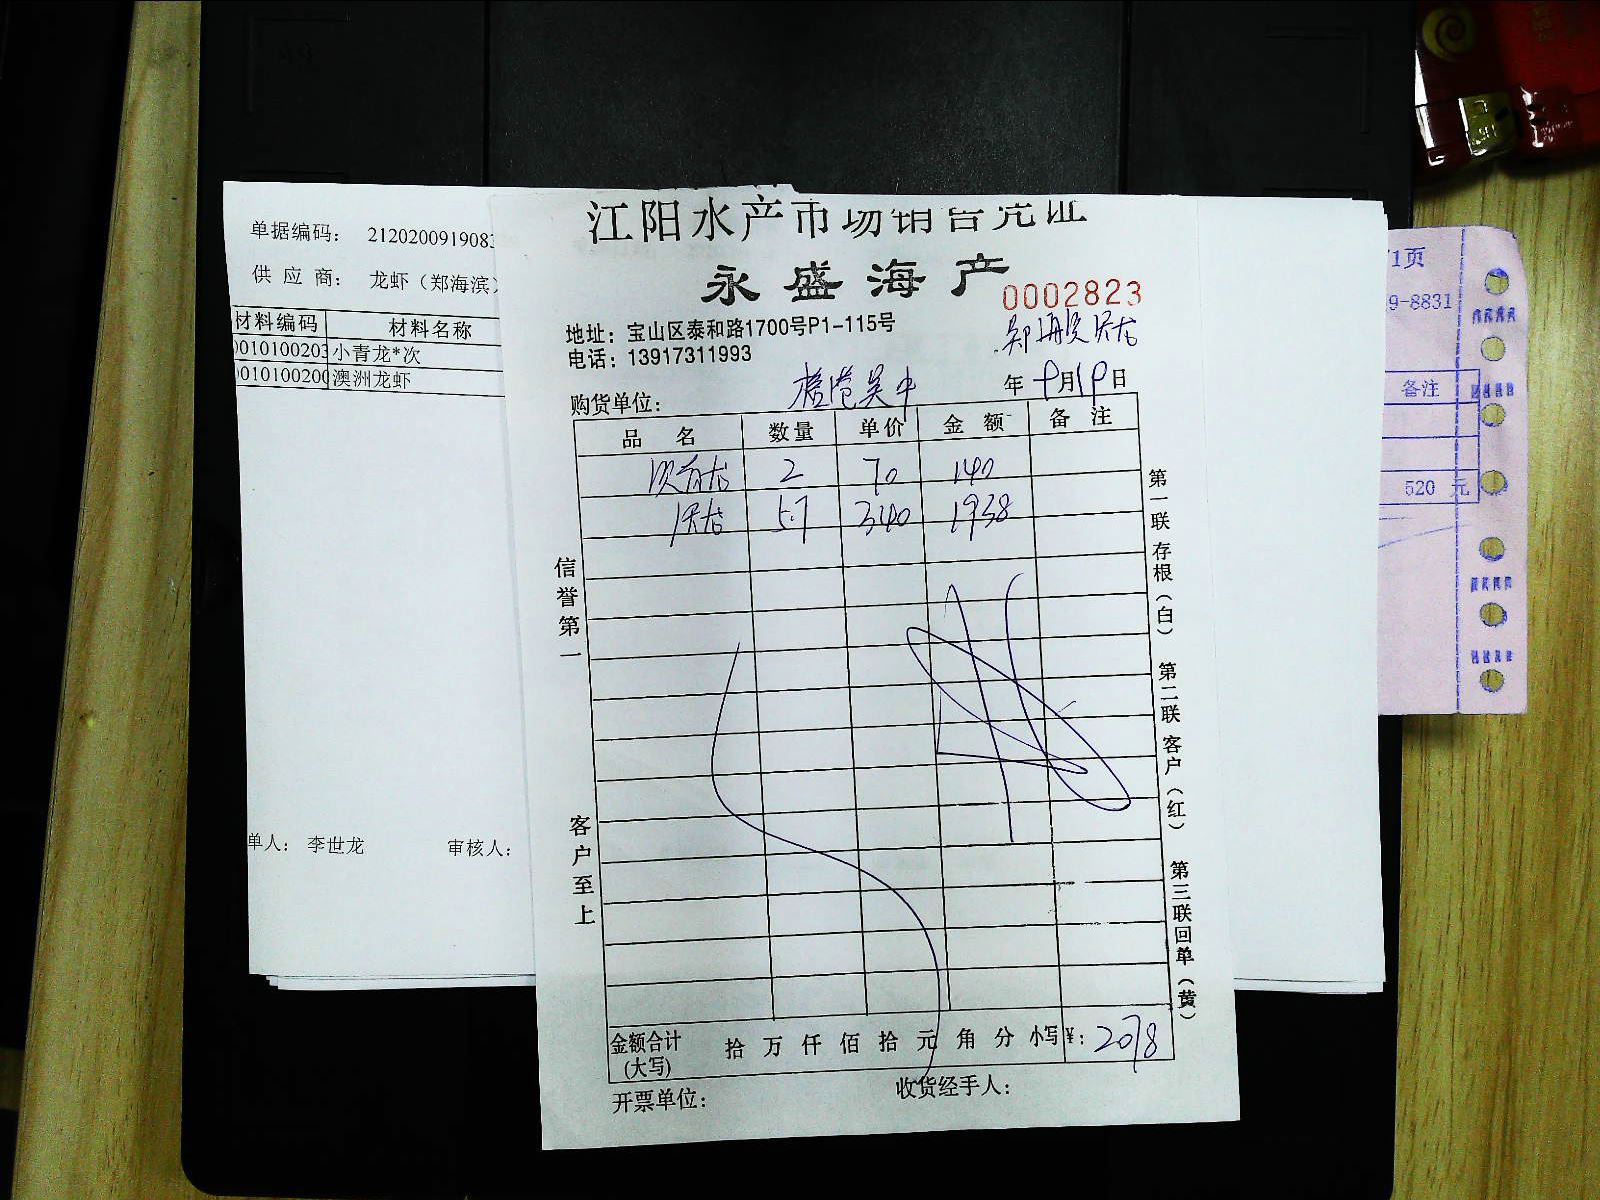 单据编码： 212020091908
供 应 商： 龙虾（郑海滨）
材料编码 材料名称
0010100203 小青龙*次
001010020 澳洲龙虾
单人： 李世龙
审核人：
江阳水产市场销售凭证
永盛海产
0002823
地址：宝山区泰和路1700号P1-115号
电话：13917311993
购货单位：
年 9月19日
品 名 数量 单价 金 额 备 注
次青龙 2 70 140
澳龙 5.7 340 1938
信誉第一
客户至上
第一联存根（白）
第二联客户（红）
第三联回单（黄）
金额合计 拾 万 仟 佰 拾 元 角 分 小写¥：2078
(大写)
开票单位：
收货经手人：
/1页
9-8831
备注
520 元